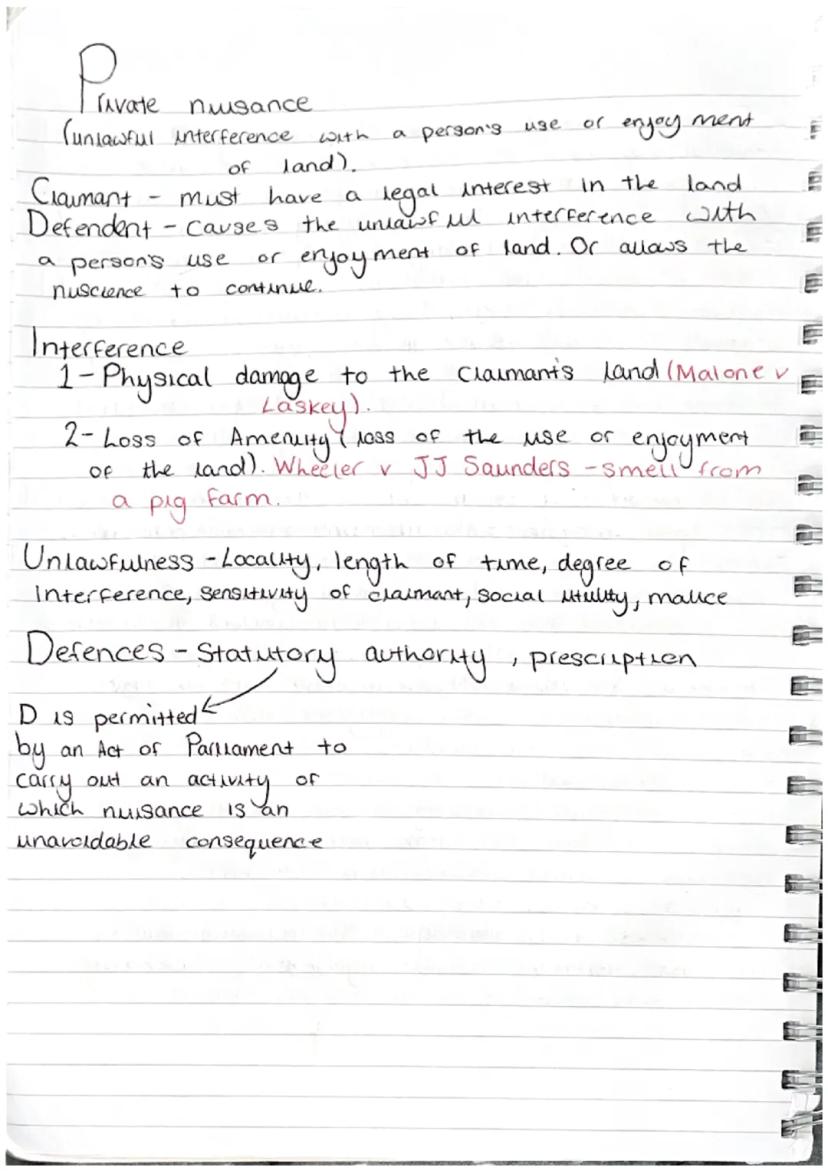 Private nuisance
(unlawful interference with a person's use or enjoyment
of land).
Claimant - must have a legal interest in the land
Defendent - causes the unlawful interference with
a person's use or enjoyment of land. Or allows the
nuscience to continue.
Interference
1- Physical damage to the claimant's land (Malone v
Laskey).
2- Loss of Amenuty (loss of the use or enjoyment
of the land). Wheeler v JJ Saunders - smell from
a pig farm.
Unlawfulness - Locality, length of time, degree of
interference, sensitivity of claimant, social utility, malice
Defences - Statutory authority, prescription
D is permitted
by an Act of Parliament to
carry out an activity of
which nuisance is an
unavoidable consequence